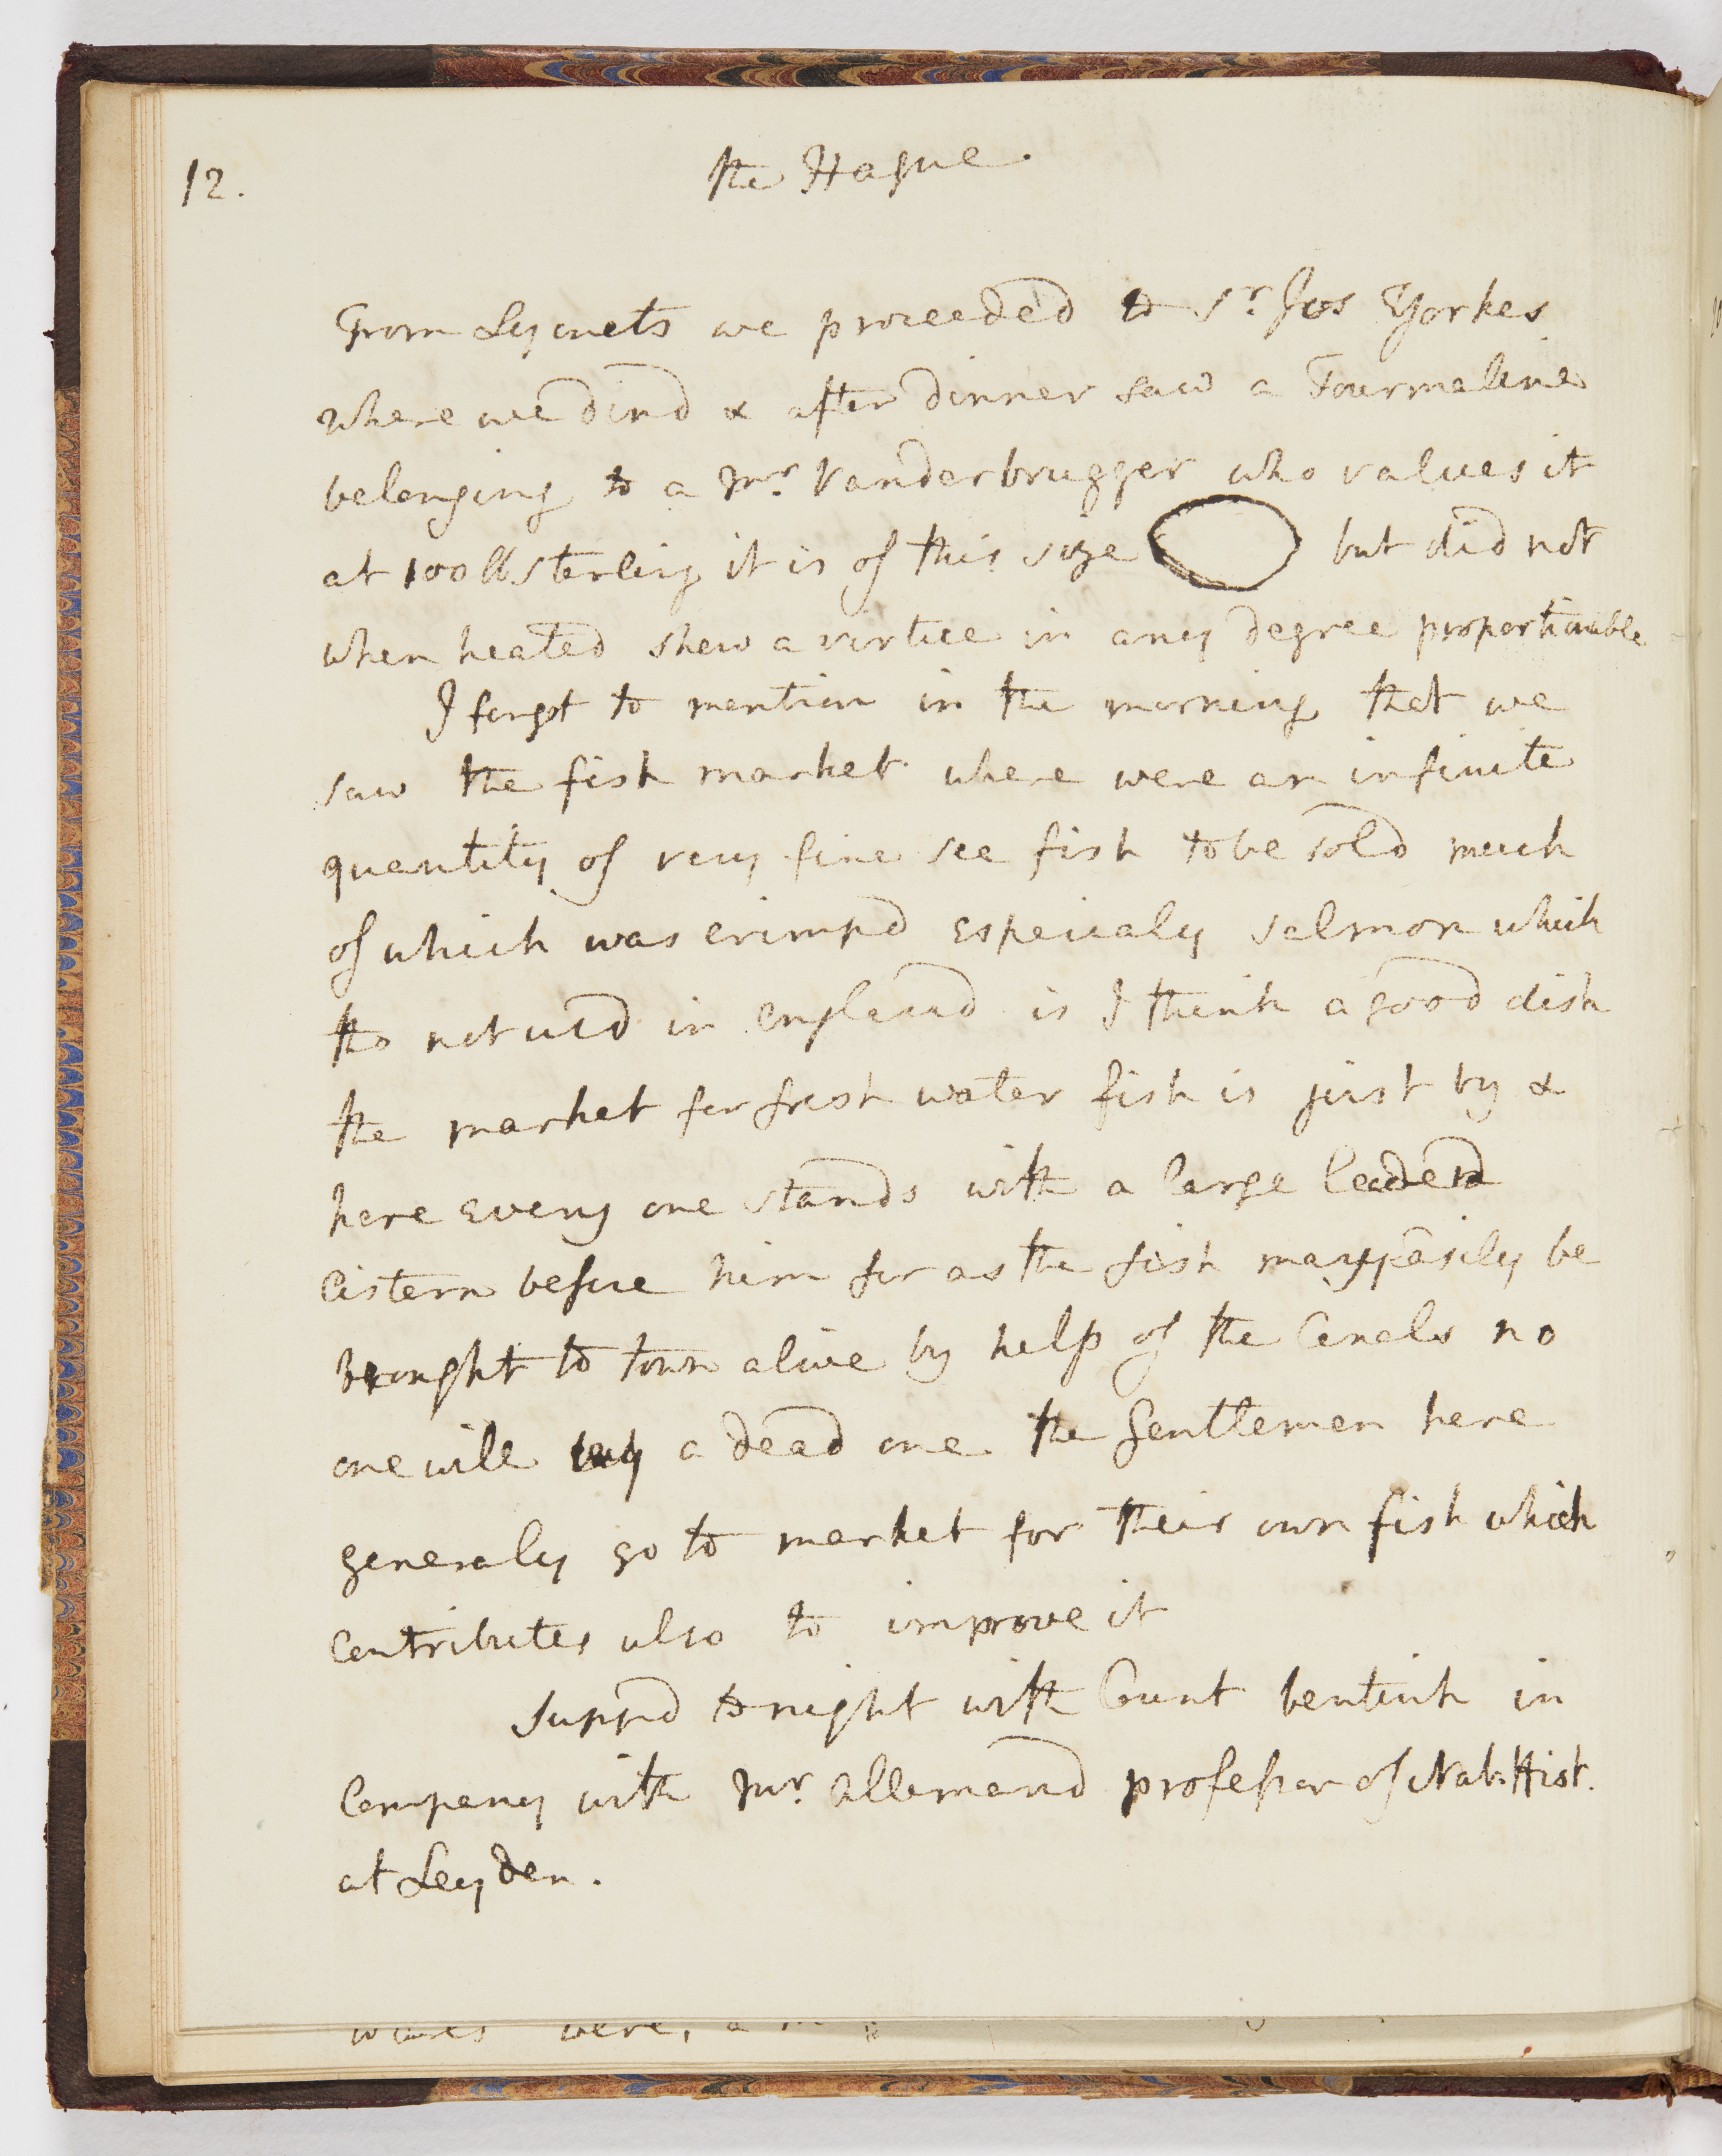 12.
the Hague.
From Lyonets we proceeded to Sr. Jos Yorkes
where we dind & after dinner saw a Tourmaline
belonging to a Mr. Vanderbrugger who values it
at 100 ll sterling it is of this size but did not
when heated shew a virtue in any degree proportionable
I forgot to mention in the morning that we
saw the fish market where were an infinite
quantity of very fine see fish to be sold much
of which was crimpd Especialy Salmon which
tho not usd in england is I think a good dish
the market for fresh water fish is just by &
here Every one stands with a large leaden
Cistern before him for as the fish may easily be
brought to town alive by help of the Canals no
one will buy a dead one the Gentlemen here
generaly go to market for their own fish which
Contributes also to improve it
Suppd to night with Count bentink in
Company with Mr. Allemand professor of Nat. Hist.
at Leyden.
were,